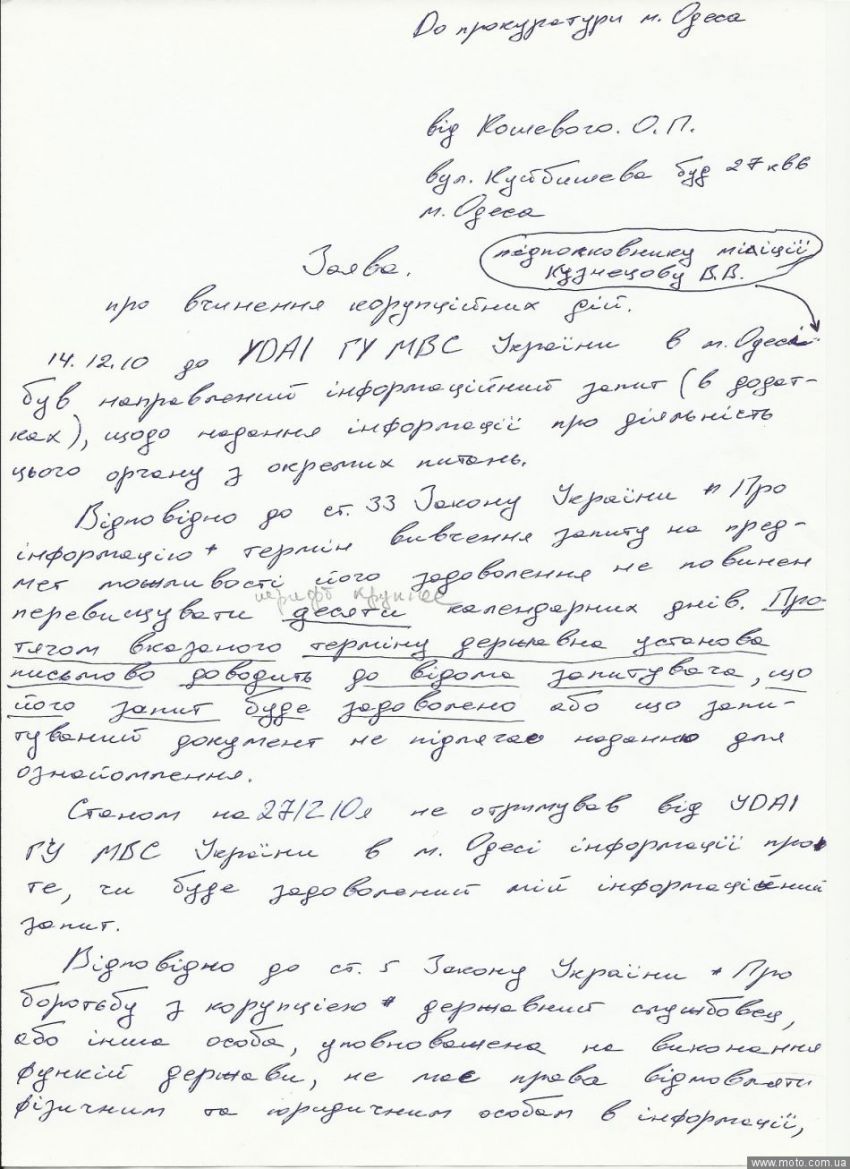 До прокуратури м. Одеса
від Кошевого. О.П.
вул. Куйбишева буд 27 кв 6
м. Одеса
підполковнику міліції
Кузнецову В.В.
Заява.
про вчинення корупційних дій.
14.12.10 до УДАІ ГУ МВС України в м. Одесі
був направлений інформаційний запит (в додат-
ках), щодо надання інформації про діяльність
цього органу з окремих питань.
Відповідно до ст. 33 Закону України "Про
інформацію" термін вивчення запиту на пред-
мет можливості його задоволення не повинен
шрифт крупнее
перевищувати десяти календарних днів. Про-
тягом вказаного терміну державна установа
письмово доводить до відома запитувача, що
його запит буде задоволено або що запи-
туваний документ не підлягає наданню для
ознайомлення.
Станом на 27/12/10 я не отримував від УДАІ
ГУ МВС України в м. Одесі інформації про
те, чи буде задоволений мій інформаційний
запит.
Відповідно до ст. 5 Закону України "Про
боротьбу з корупцією" державний службовец,
або інша особа, уповноважена на виконання
функцій держави, не має права відмовляти
фізичним та юридичним особам в інформації,
www.moto.com.ua